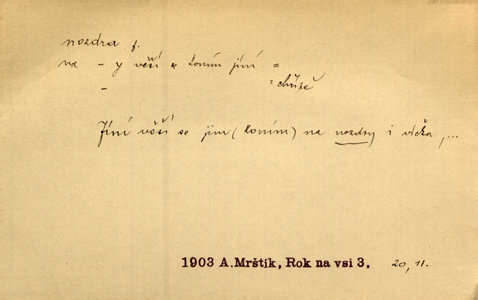 nozdra f.
na - y věší se koním jíní =
- = chřípě
Jíní věší se jim (koním) na nozdry i víčka, ...
1903 A.Mrštík, Rok na vsi 3. 20, 11.